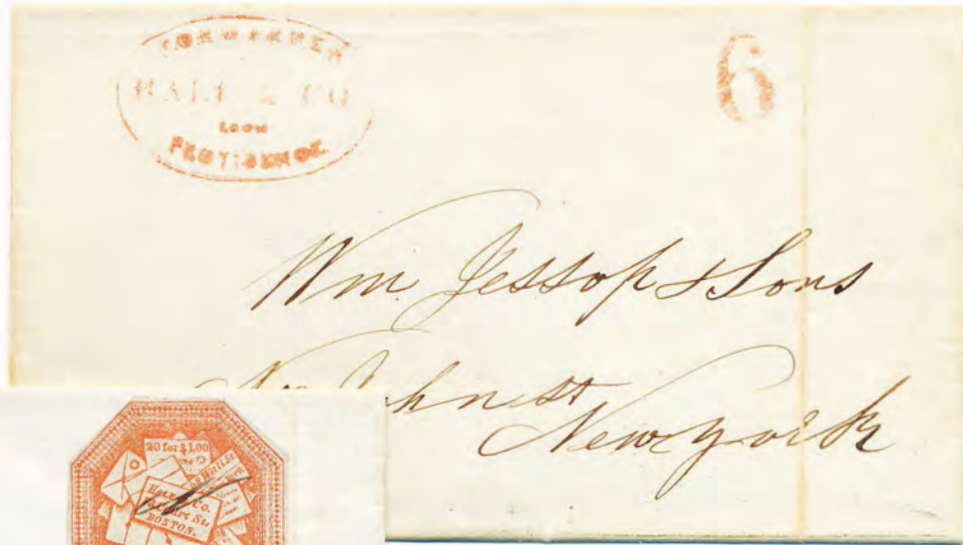 FORWARDED
HALE & CO
FROM
PROVIDENCE
6
Wm. Jessop & Sons
John st
New York
20 for $1.00
Wall St
Hale & Co.
BOSTON.